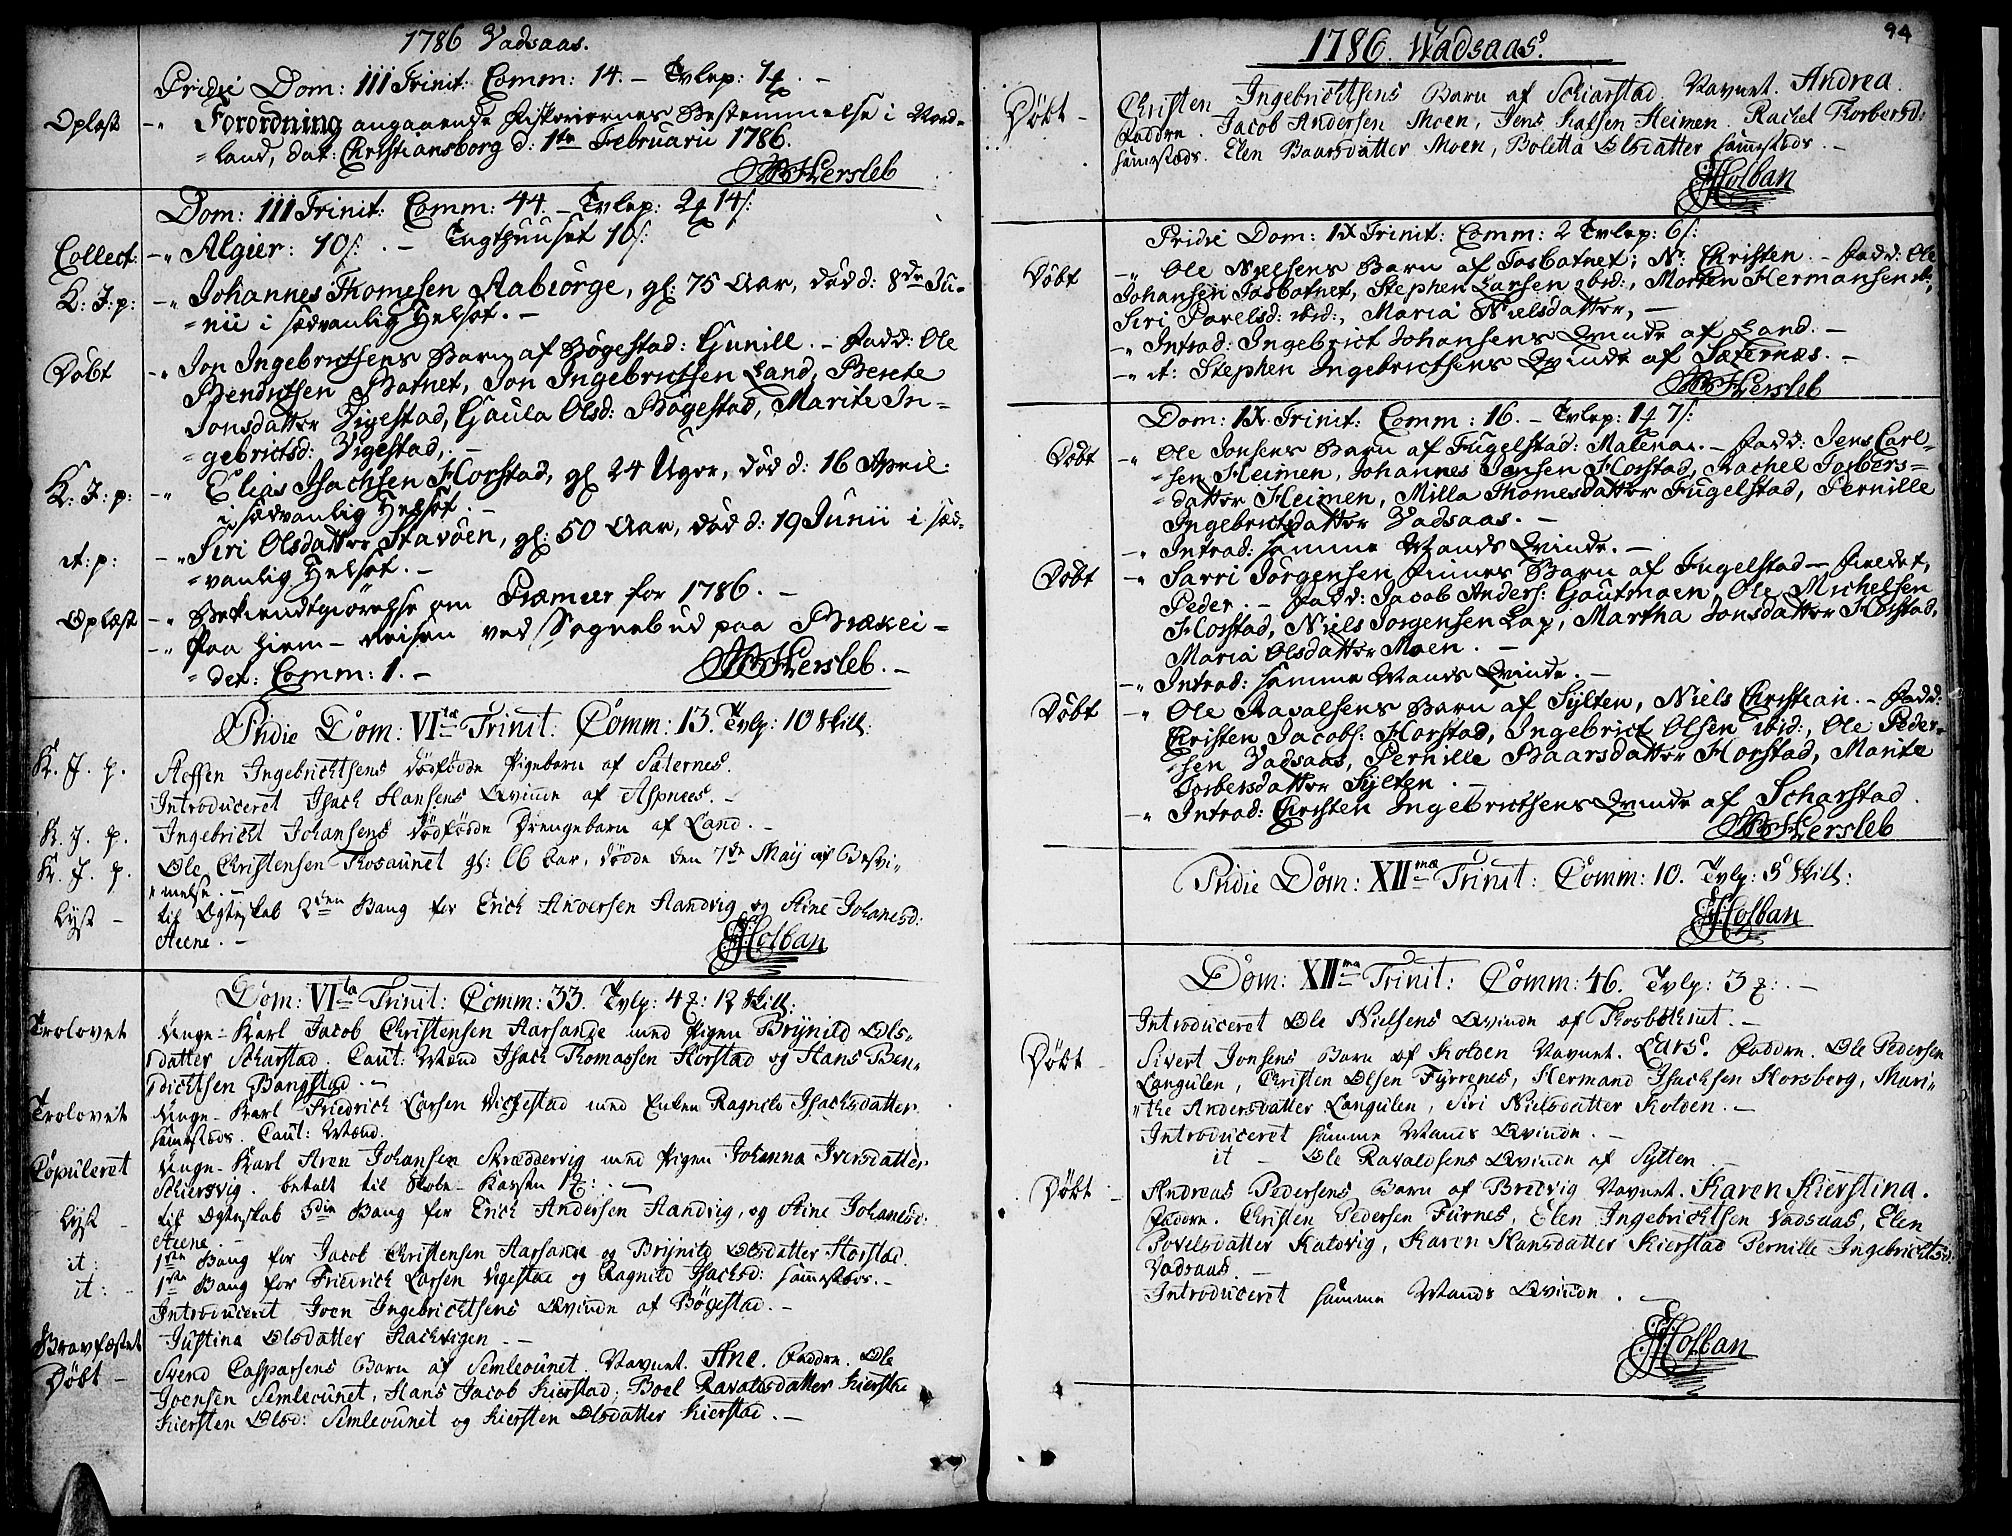 1786 Vadsaas.
Pridie Dom: III Trinit: Comm: 14. – Tvlep:
Oplæst -„ Forordning angaaende Fiskeriernes Bestemmelse i Nord-
=land, dat: Christiansborg d. 1ste Februarii 1786.
Hersleb
Dom: III Trinit: Comm: 44. – Tvlep: 2 14 s:
Collect: -„ Algier: 10 s: . – Tugthuuset 10 s:
K: J: p: -„ Johannes Thomesen Aabiörge, gl: 75 Aar, død d: 8de Ju-
=nii i sædvanlig Helsot. –
Döbt -„ Jon Ingebrictsens Barn af Bøgestad: Gunill. – Fadd: Ole
Bendictsen Botnet, Jon Ingebrictsen Land, Berete
Jonsdatter Vigestad, Gaula Olsd: Bøgestad, Marite In-
=gebrictsd: Vigestad. –
K: J: p: -„ Elias Isachsen Horstad, gl 24 Uger, død d: 16 April:
i sædvanlig Helsot. –
it: p: -„ Siri Olsdatter Stavöen, gl: 50 Aar, død d: 19 Junii i sæd-
=vanlig Helsot. –
Oplæst -„ Bekiendtgiørelse om Præmier for 1786. –
-„ Paa Hiem-Reisen ved Sognebud paa Brækei-
=det: Comm: 1. – Hersleb. –
Pridie Dom: VIta Trinit: Comm: 13. Tvlp: 10 skill:
K. J. p. Steffen Ingebrichtsens dødfödde Pigebarn af Säternes.
Introduceret Isach Hansens Qvinde af Aspnees. –
K. J. p. Ingebricht Johansens dödfödde Drengebarn af Land. –
K. J. p. Ole Christensen Thosaunet gl: 66 Aar, dödde den 7de Maij af Besvi-
melse. –
Lyst – til Ægteskab 2den Gang for Erich Andersen Sandvig og Stine Johanesd:
Steene. – Holban
Dom: VIta Trinit: Comm: 33. Tvlp: 4 : 12 skill:
Trolovet Unge-Karl Jacob Christensen Aarsande med Pigen Brÿnild Ols-
datter Scharstad. Caut: Mænd Isach Thomassen Horstad og Hans Ben-
dichtsen Bangstad. –
Trolovet Unge-Karl Friedrich Larsen Vichestad med Enken Ragnild Isachsdatter
samestæds. Caut: Mænd.
Copuleret Unge-Karl Aren Johansen Skræddervig med Pigen Johanna Iversdatter
Schiersvig. betalt til Skole-Kassen 1 : –
Lyst – til Ægteskab 3die Gang for Erich Andersen Sandvig, og Stine Johanesd:
Steene. –
it: 1ste Gang for Jacob Christensen Aarsande og Brÿnild Olsdatter Horstad.
it: – 1ste Gang for Friedrich Larsen Vigestad og Ragnild Isachsd: samestæds. –
Introduceret Joen Ingebrichtsens Qvinde af Bögestad. –
Gravfæstet Justina Olsdatter Aachvigen. –
Döbt – Svend Caspersens Barn af Semleounet. Navnet. Ane. Faddre. Ole
Joensen Semleounet, Hans Jacob Kierstad, Boel Ravaldsdatter Kierstad
Kiersten Olsd: Semleounet og Kiersten Olsdatter Kierstad. –
94
1786. Wadsaas.
Döbt – Christen Ingebrichtsens Barn af Schiarstad. Navnet. Andrea.
Faddre. Jacob Andersen Moen, Jens Kalsen Heimen. Rachel Thorbersd:
samestæds. Elen Baarsdatter Moen, Boletta Olsdatter samestæds. –
Holban
Pridie Dom: IX Trinit: Comm: 2 Tvlep: 6 s:
Döbt -„ Ole Nielsens Barn af Tosbotnet; N: Christen. – Fadd: Ole
Johansen Tosbotnet, Stephen Larsen ibid:, Morten Hermansen ib:,
Siri Pavelsd: ibid:, Maria Nielsdatter, –
-„ Introd: Ingebrict Johansens Qvinde af Land. –
-„ it: Stephen Ingebrictsens Qvinde af Sæternæs. –
Hersleb
Dom: IX Trinit: Comm: 16. – Tvlep: 1 7 s:
Döbt -„ Ole Jonsens Barn af Fugelstad: Malena. – Fadd: Jens Carl-
=sen Heimen, Johannes Jensen Horstad, Rachel Torbers-
=datter Heimen, Milla Thomesdatter Fugelstad, Pernille
Ingebrictsdatter Vadsaas. –
-„ Introd: samme Mands Qvinde. –
Döbt -„ Sarri Jörgensen Finnes Barn af Fugelstad–Fieldet,
Peder. – Fadd: Jacob Anders: Gautmoen, Ole Michelsen
Horstad, Niels Jorgensen Lap, Martha Jonsdatter Horstad,
Maria Olsdatter Moen. –
-„ Introd: samme Mands Qvinde. –
Döbt -„ Ole Ravalsens Barn af Sÿlten, Niels Christian. – Fadd:
Christen Jacobs: Horstad, Ingebrict Olsen ibid:, Ole Peder-
=sen Vadsaas, Pernille Baarsdatter Horstad, Marite
Torbersdatter Sÿlten. –
-„ Introd: Christen Ingebrictsens Qvinde af Scharstad.
Hersleb
Pridie Dom: XIIma Trinit: Comm: 10. Tvlp: 8 skill:
Holban
Dom: XIIma Trinit: Comm: 46. Tvlp: 3 : . –
Introduceret Ole Nielsens Qvinde af Thosbothnet. –
Döbt – Sivert Jonsens Barn af Kolden Navnet. Lars. Faddre. Ole Pedersen
Langulen, Christen Olsen Fÿrrenes, Hermand Isachsen Horsberg, Mari-
the Andersdatter Langulen, Siri Nielsdatter Kolden. –
Introduceret samme Mands Qvinde. –
it – Ole Ravaldsens Qvinde af Sylten –
Döbt – Andreas Pedersens Barn af Bredvig Navnet. Karen Kierstina.
Faddre. Christen Pedersen Furnes, Elen Ingebrichtsen Vadsaas, Elen
Povelsdatter Kaldvig, Karen Hansdatter Kierstad Pernille Ingebrichtsd:
Vadsaas. –
Introduceret samme Mands Qvinde. –
Holban